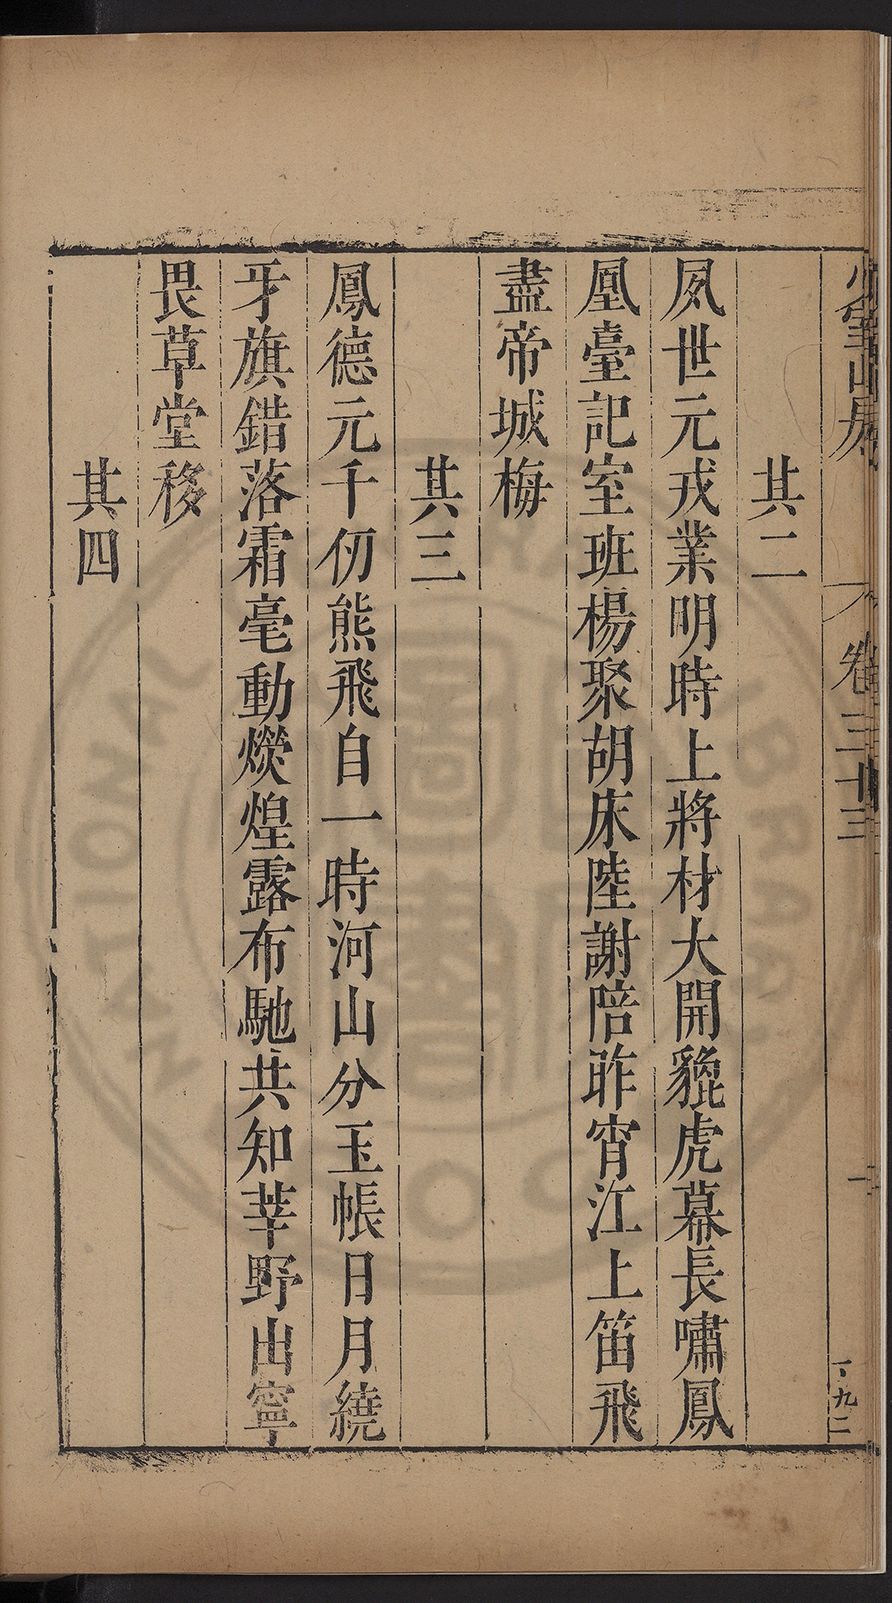 少室山房
卷三十三
其二
夙世元戎業明時上將材大開貔虎幕長嘯鳳
凰臺記室班楊聚胡床陸謝陪昨宵江上笛飛
盡帝城梅
其三
鳳德元千仞熊飛自一時河山分玉帳日月繞
牙旗錯落霜毫動熒煌露布馳共知莘野出寧
畏草堂移
其四